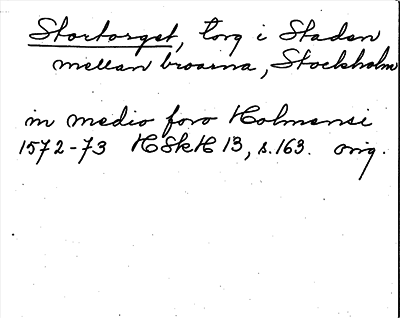 Stortorget, torg i Staden
mellan broarna, Stockholm
in medio foro Holmensi
1572-73 HSkH 13, s.163. orig.